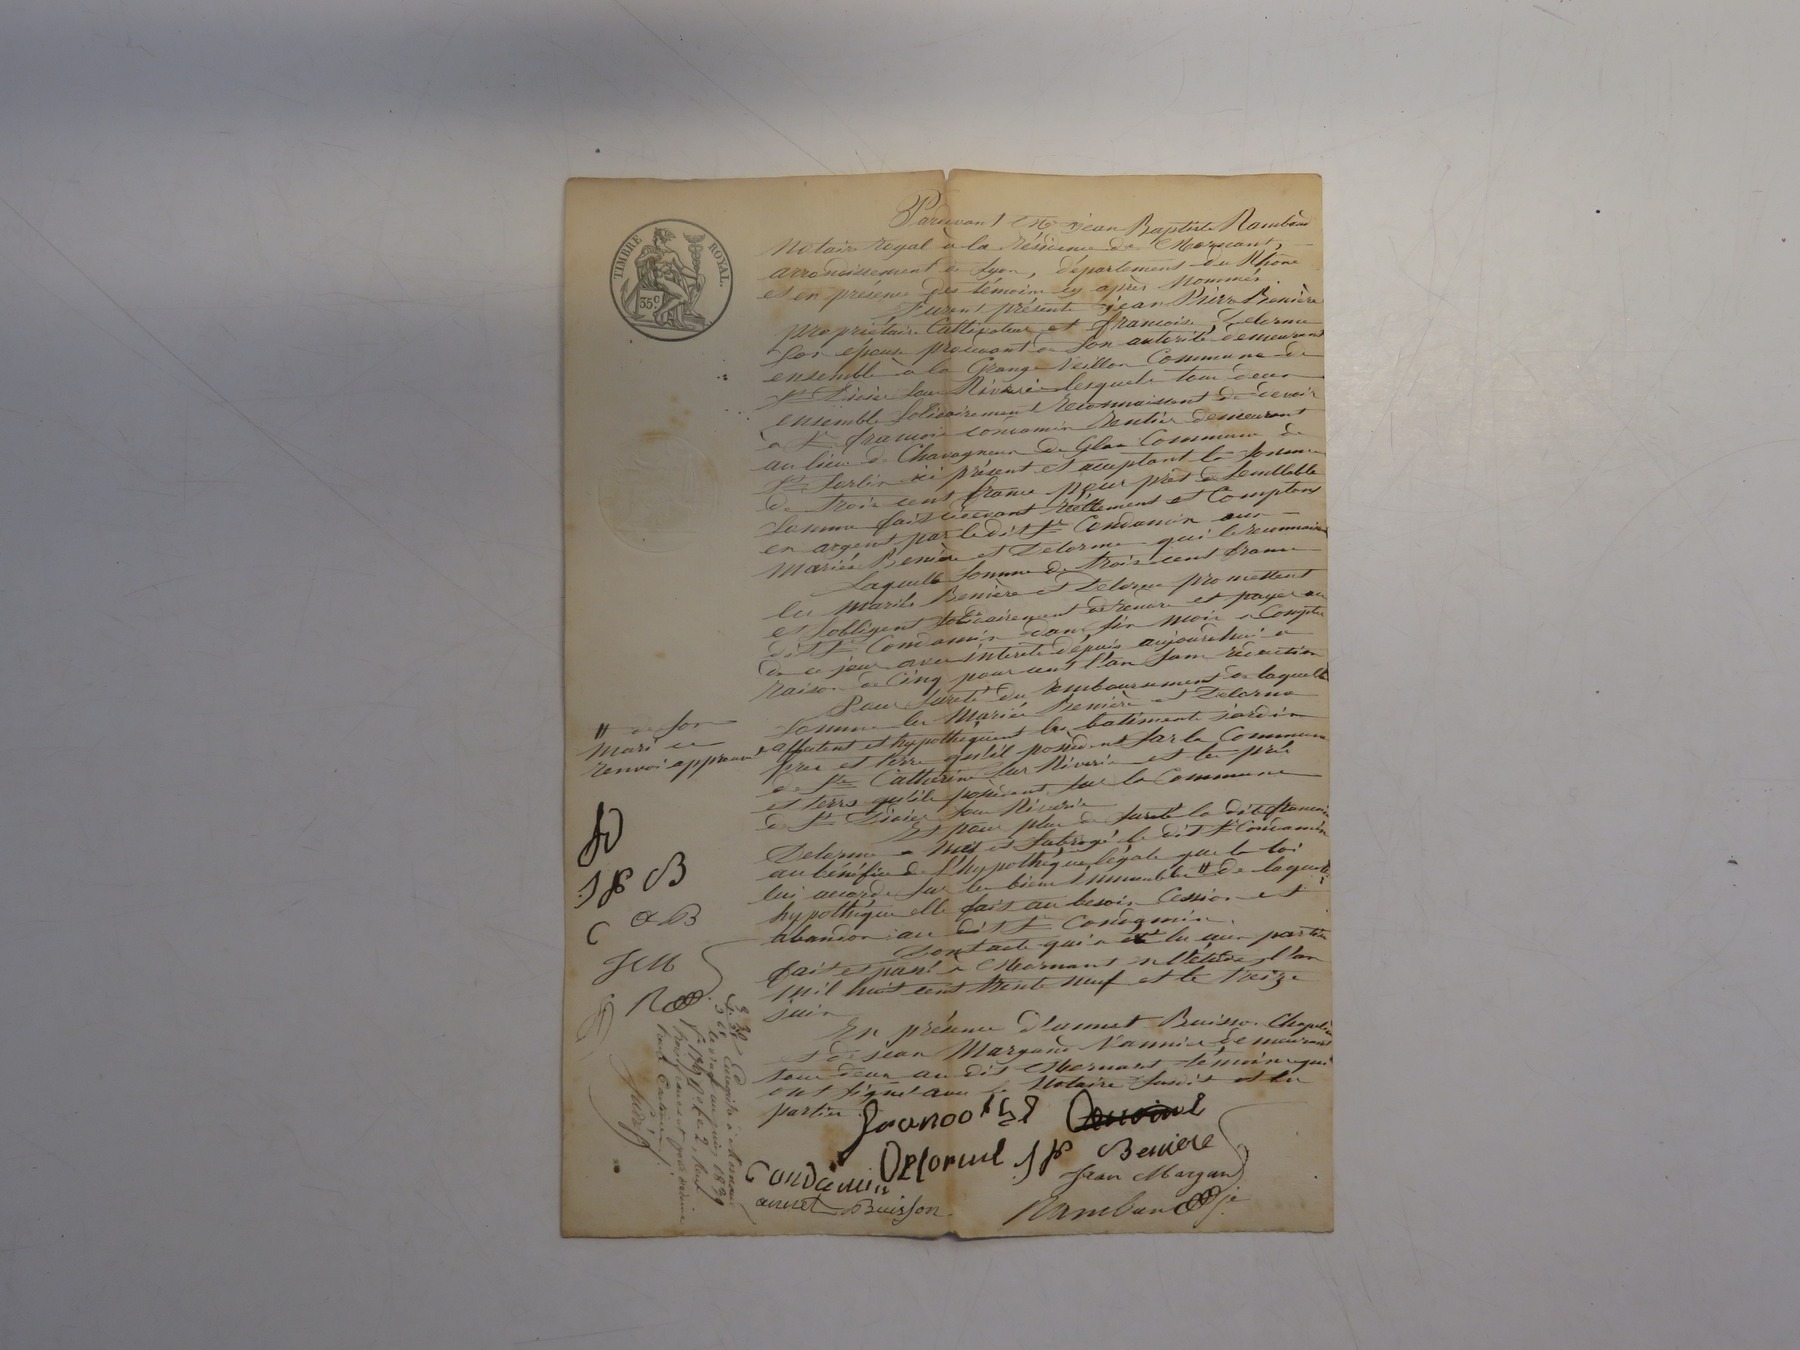 TIMBRE ROYAL.
35 c
Pardevant Me Jean Baptiste Rambaud
Notaire royal à la résidence de Mornant,
arrondissement de Lyon, département du Rhône
et en présence des témoins cy après nommés.
Furent présents Jean Pierre Benière
propriétaire Cultivateur et francoise Delorme
son épouse procédant de son autorité demeurant
ensemble à la Grange Veillon Commune de
St Didier sous Riverie lesquels tous deux
ensemble solidairement reconnaissent de devoir
à Sr francois Condamin Rentier demeurant
au lieu de Chavagneux de Commune de
St Sorlin ici présent et acceptant la somme
de trois cent francs pour prêt de semblable
somme fait devant réellement et Comptons
en argent par le dit Sr Condamin aux
mariés Benière et Delorme qui le reconnaissent
Laquelle somme de trois cent francs
les mariés Benière et Delorme promettent
et s'obligent solidairement de rendre et payer au
dit Sr Condamin dans six mois à Compter
de ce jour avec intérêts depuis aujourd'hui à
raison de Cinq pour cent l'an sans réduction
Pour sureté du remboursement de laquelle
somme les Mariés Benière et Delorme
affectent et hypothèquent les batiments jardin
prés et terre qu'ils possèdent sur la Commune
de Ste Catherine sur Riverie et les prés
et terre qu'ils possèdent sur la Commune
de St Didier sous Riverie
Et pour plus de sureté la dite francoise
Delorme a mis et subrogé le dit Sr Condamin
au bénéfice de l'hypothèque légale que la loi
lui accorde sur les biens immeubles # de laquelle
hypothèque elle fait au besoin Cession et
abandon au dit Sr Condamin.
Dont acte qui a été lu aux parties
fait et passé à Mornant en l'étude, l'an
mil huit cent trente neuf et le treize
juin
En présence d'annet Buisson Chapelier
et de jean Margand Vannier demeurant
tous deux au dit Mornant témoins qui
ont signé avec le Notaire susdit et les
parties.
# de son
mari ce
renvoi approuvé
fD
JP B
C a B
JM
R
francoise
Delorme JP Beniere
Condamin Jean Margand
annet Buisson Rambaud
Enregistré à Mornant
le vingt un juin 1839